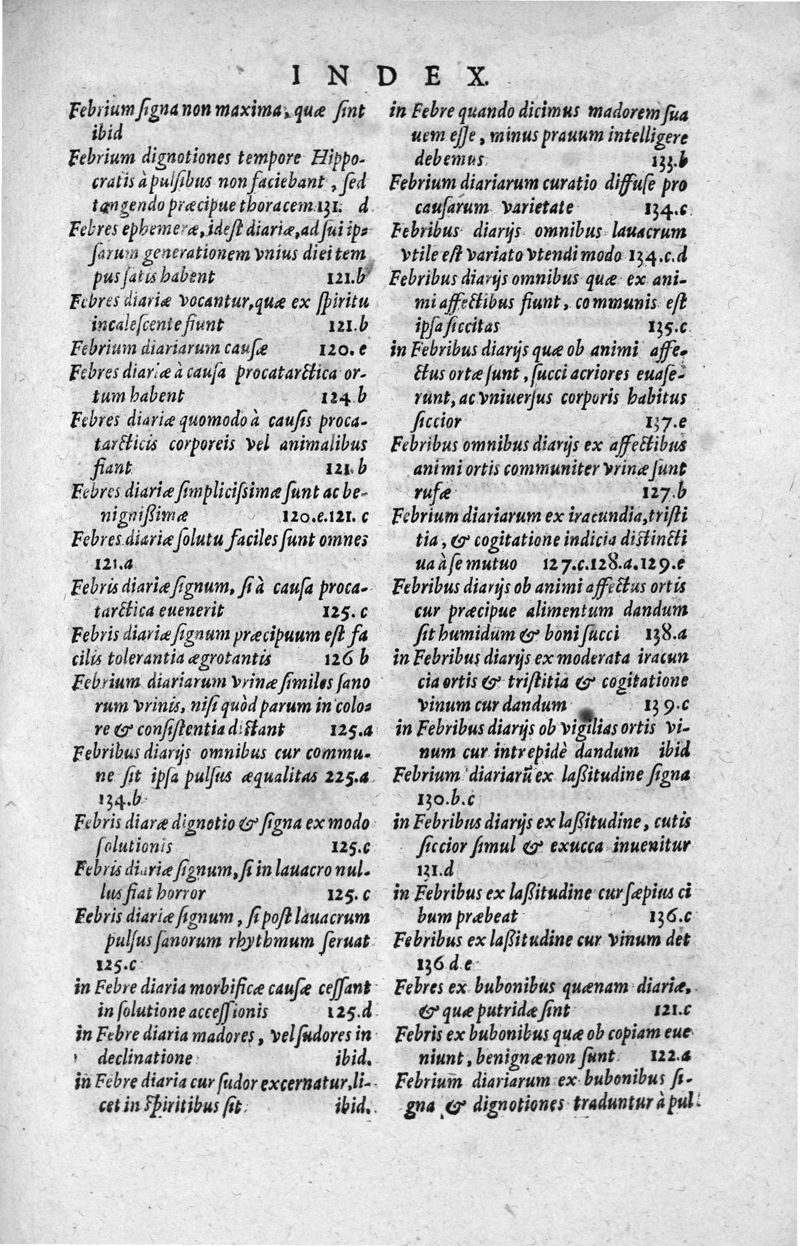 INDEX.
Febrium signa non maxima, quæ sint
ibid
Febrium dignotiones tempore Hippo-
cratis à pulsibus non faciebant, sed
tangendo præcipue thoracem. 131. d
Febres ephemeræ, idest diariæ, ad sui ip-
sarum generationem vnius diei tem
pus satis habent 121.b
Febres diariæ vocantur, quæ ex spiritu
incalescente fiunt 121.b
Febrium diariarum causæ 120.e
Febres diariæ à causa procatarctica or-
tum habent 124.b
Febres diariæ quomodo à causis proca-
tarcticis corporeis vel animalibus
fiant 121.b
Febres diariæ simplicissimæ sunt ac be-
nignißimæ 120.e.121.c
Febres diariæ solutu faciles sunt omnes
121.a
Febris diariæ signum, si à causa proca-
tarctica euenerit 125.c
Febris diariæ signum præcipuum est fa
cilis tolerantia ægrotantis 126 b
Febrium diariarum vrinæ similes sano
rum vrinis, nisi quòd parum in colo-
re & consistentia distant 125.a
Febribus diarijs omnibus cur commu-
ne sit ipsa pulsus æqualitas 225.a
134.b
Febris diaræ dignotio & signa ex modo
solutionis 125.c
Febris diariæ signum, si in lauacro nul-
lus fiat horror 125.c
Febris diariæ signum, si post lauacrum
pulsus sanorum rhythmum seruat
125.c
in Febre diaria morbificæ causæ cessant
in solutione accessionis 125.d
in Febre diaria madores, vel sudores in
declinatione ibid.
in Febre diaria cur sudor excernatur, li-
cet in spiritibus sit ibid.
in Febre quando dicimus madorem sua
uem esse, minus prauum intelligere
debemus 133.b
Febrium diariarum curatio diffuse pro
causarum varietate 134.c
Febribus diarijs omnibus lauacrum
vtile est variato vtendi modo 134.c.d
Febribus diarijs omnibus quæ ex ani-
mi affectibus fiunt, communis est
ipsa siccitas 135.c
in Febribus diarijs quæ ob animi affe-
ctus ortæ sunt, succi acriores euase-
runt, ac vniuersus corporis habitus
siccior 137.e
Febribus omnibus diarijs ex affectibus
animi ortis communiter vrinæ sunt
rufæ 127.b
Febrium diariarum ex iracundia, tristi
tia, & cogitatione indicia distincti
ua à se mutuo 127.c.128.a.129.e
Febribus diarijs ob animi affectus ortis
cur præcipue alimentum dandum
sit humidum & boni succi 138.a
in Febribus diarijs ex moderata iracun
cia ortis & tristitia & cogitatione
vinum cur dandum 139.c
in Febribus diarijs ob vigilias ortis vi-
num cur intrepidè dandum ibid
Febrium diariarũ ex laßitudine signa
130.b.c
in Febribus diarijs ex laßitudine, cutis
siccior simul & exucca inuenitur
131.d
in Febribus ex laßitudine cur sæpius ci
bum præbeat 136.c
Febribus ex laßitudine cur vinum det
136 d e
Febres ex bubonibus quænam diariæ,
& quæ putridæ sint 121.c
Febris ex bubonibus quæ ob copiam eue
niunt, benignæ non sunt 122.a
Febrium diariarum ex bubonibus si-
gna & dignotiones traduntur à pul